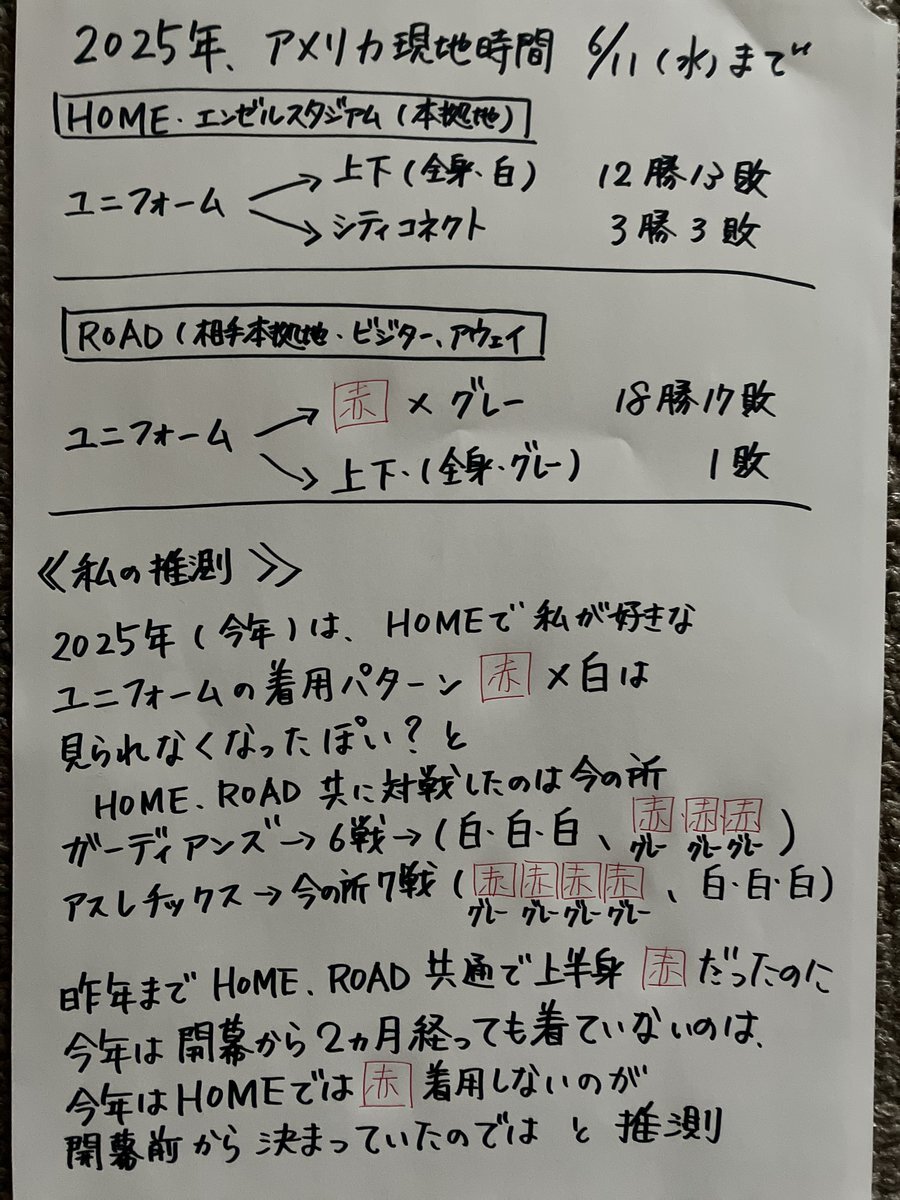 2025年、アメリカ現地時間 6/11(水)まで
HOME・エンゼルスタジアム(本拠地)
上下(全身・白) 12勝13敗
ユニフォーム
シティコネクト 3勝3敗
ROAD(相手本拠地・ビジター、アウェイ
赤×グレー 18勝17敗
ユニフォーム
上下・(全身・グレー) 1敗
≪私の推測≫
2025年(今年)は、HOMEで私が好きな
ユニフォームの着用パターン 赤×白は
見られなくなったぽい?と
HOME、ROAD 共に対戦したのは今の所
ガーディアンズ→6戦→(白・白・白、赤・赤・赤)
グレー グレー グレー
アスレチックス→今の所7戦(赤赤赤赤、白・白・白)
グレー グレー グレー グレー
昨年までHOME、ROAD 共通で上半身 赤だったのに
今年は開幕から2ヵ月経っても着ていないのは、
今年はHOMEでは赤着用しないのが
開幕前から決まっていたのでは と 推測